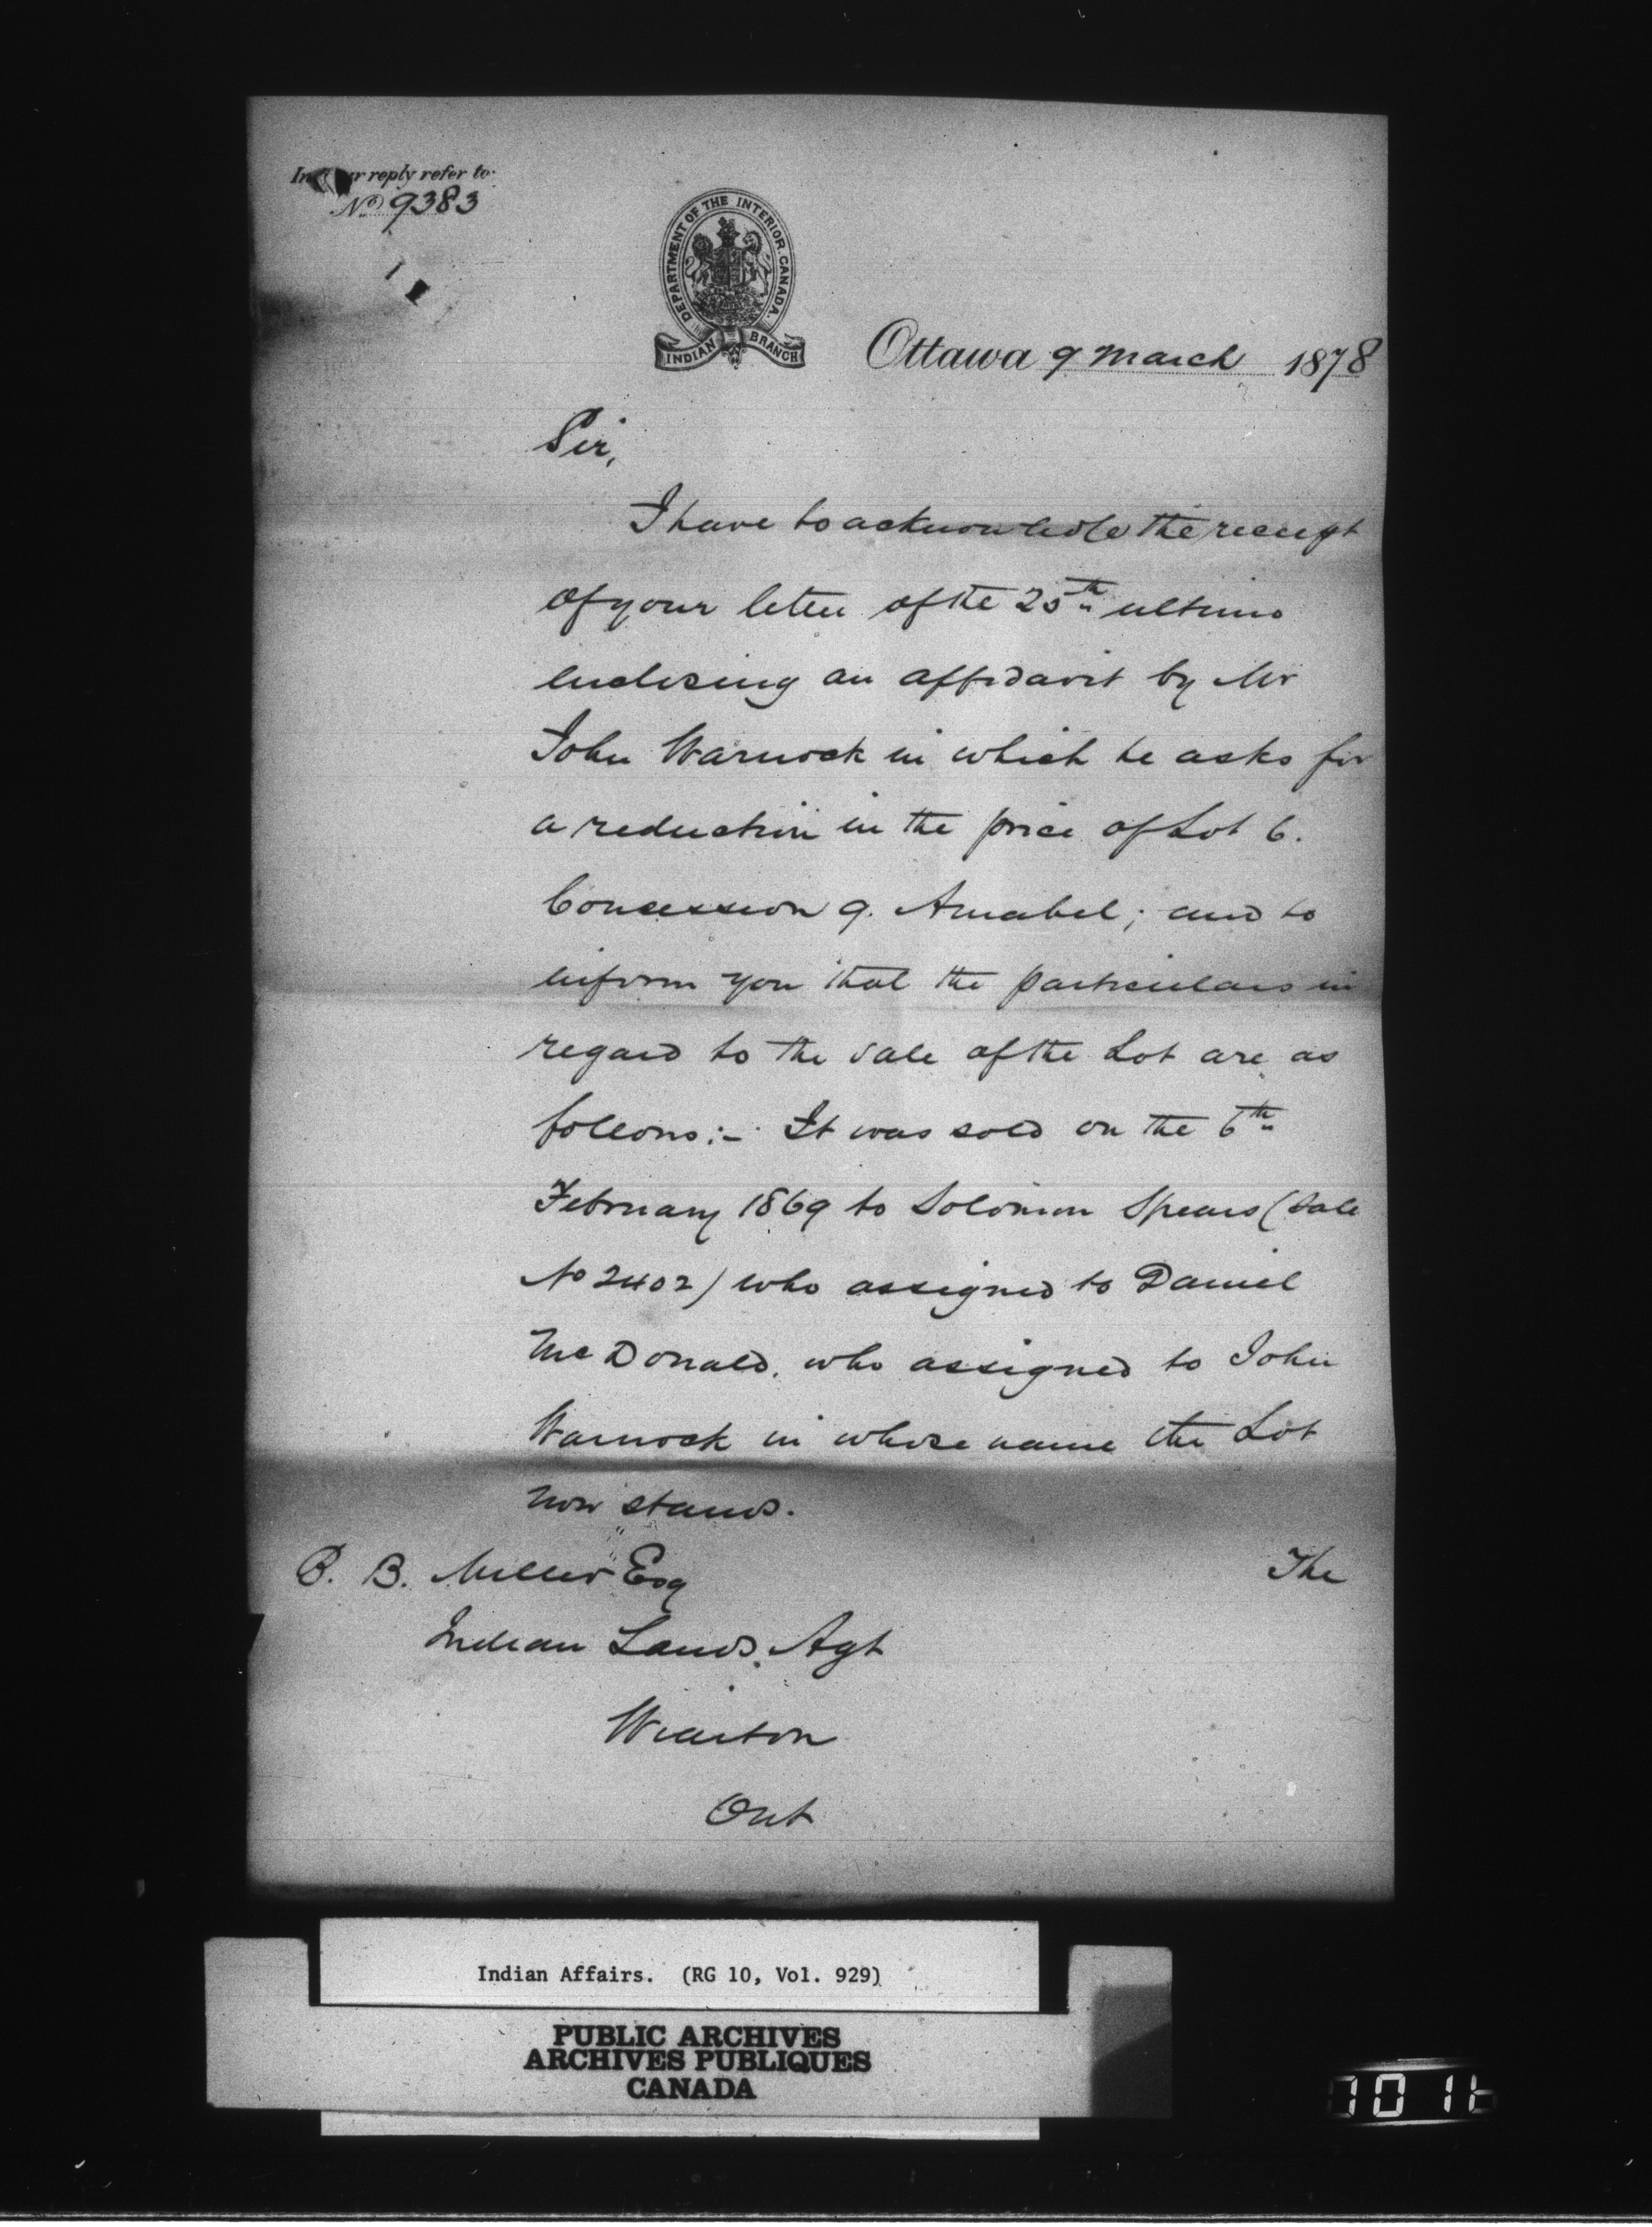 In your reply refer to
No 9383
DEPARTMENT OF THE INTERIOR. CANADA.
INDIAN BRANCH
Ottawa 9 March 1878
Sir,
I have to acknowledge the receipt
of your letter of the 25th ultimo
enclosing an affidavit by Mr
John Warnock in which he asks for
a reduction in the price of Lot 6.
Concession 9. Amabel; and to
inform you that the particulars in
regard to the sale of the Lot are as
follows:- It was sold on the 6th
February 1869 to Solomon Spears (Sale
No 2402) who assigned to Daniel
McDonald, who assigned to John
Warnock in whose name the Lot
now stands.
B. B. Miller Esq The
Indian Lands Agt
Wiarton
Ont
Indian Affairs. (RG 10, Vol. 929)
PUBLIC ARCHIVES
ARCHIVES PUBLIQUES
CANADA